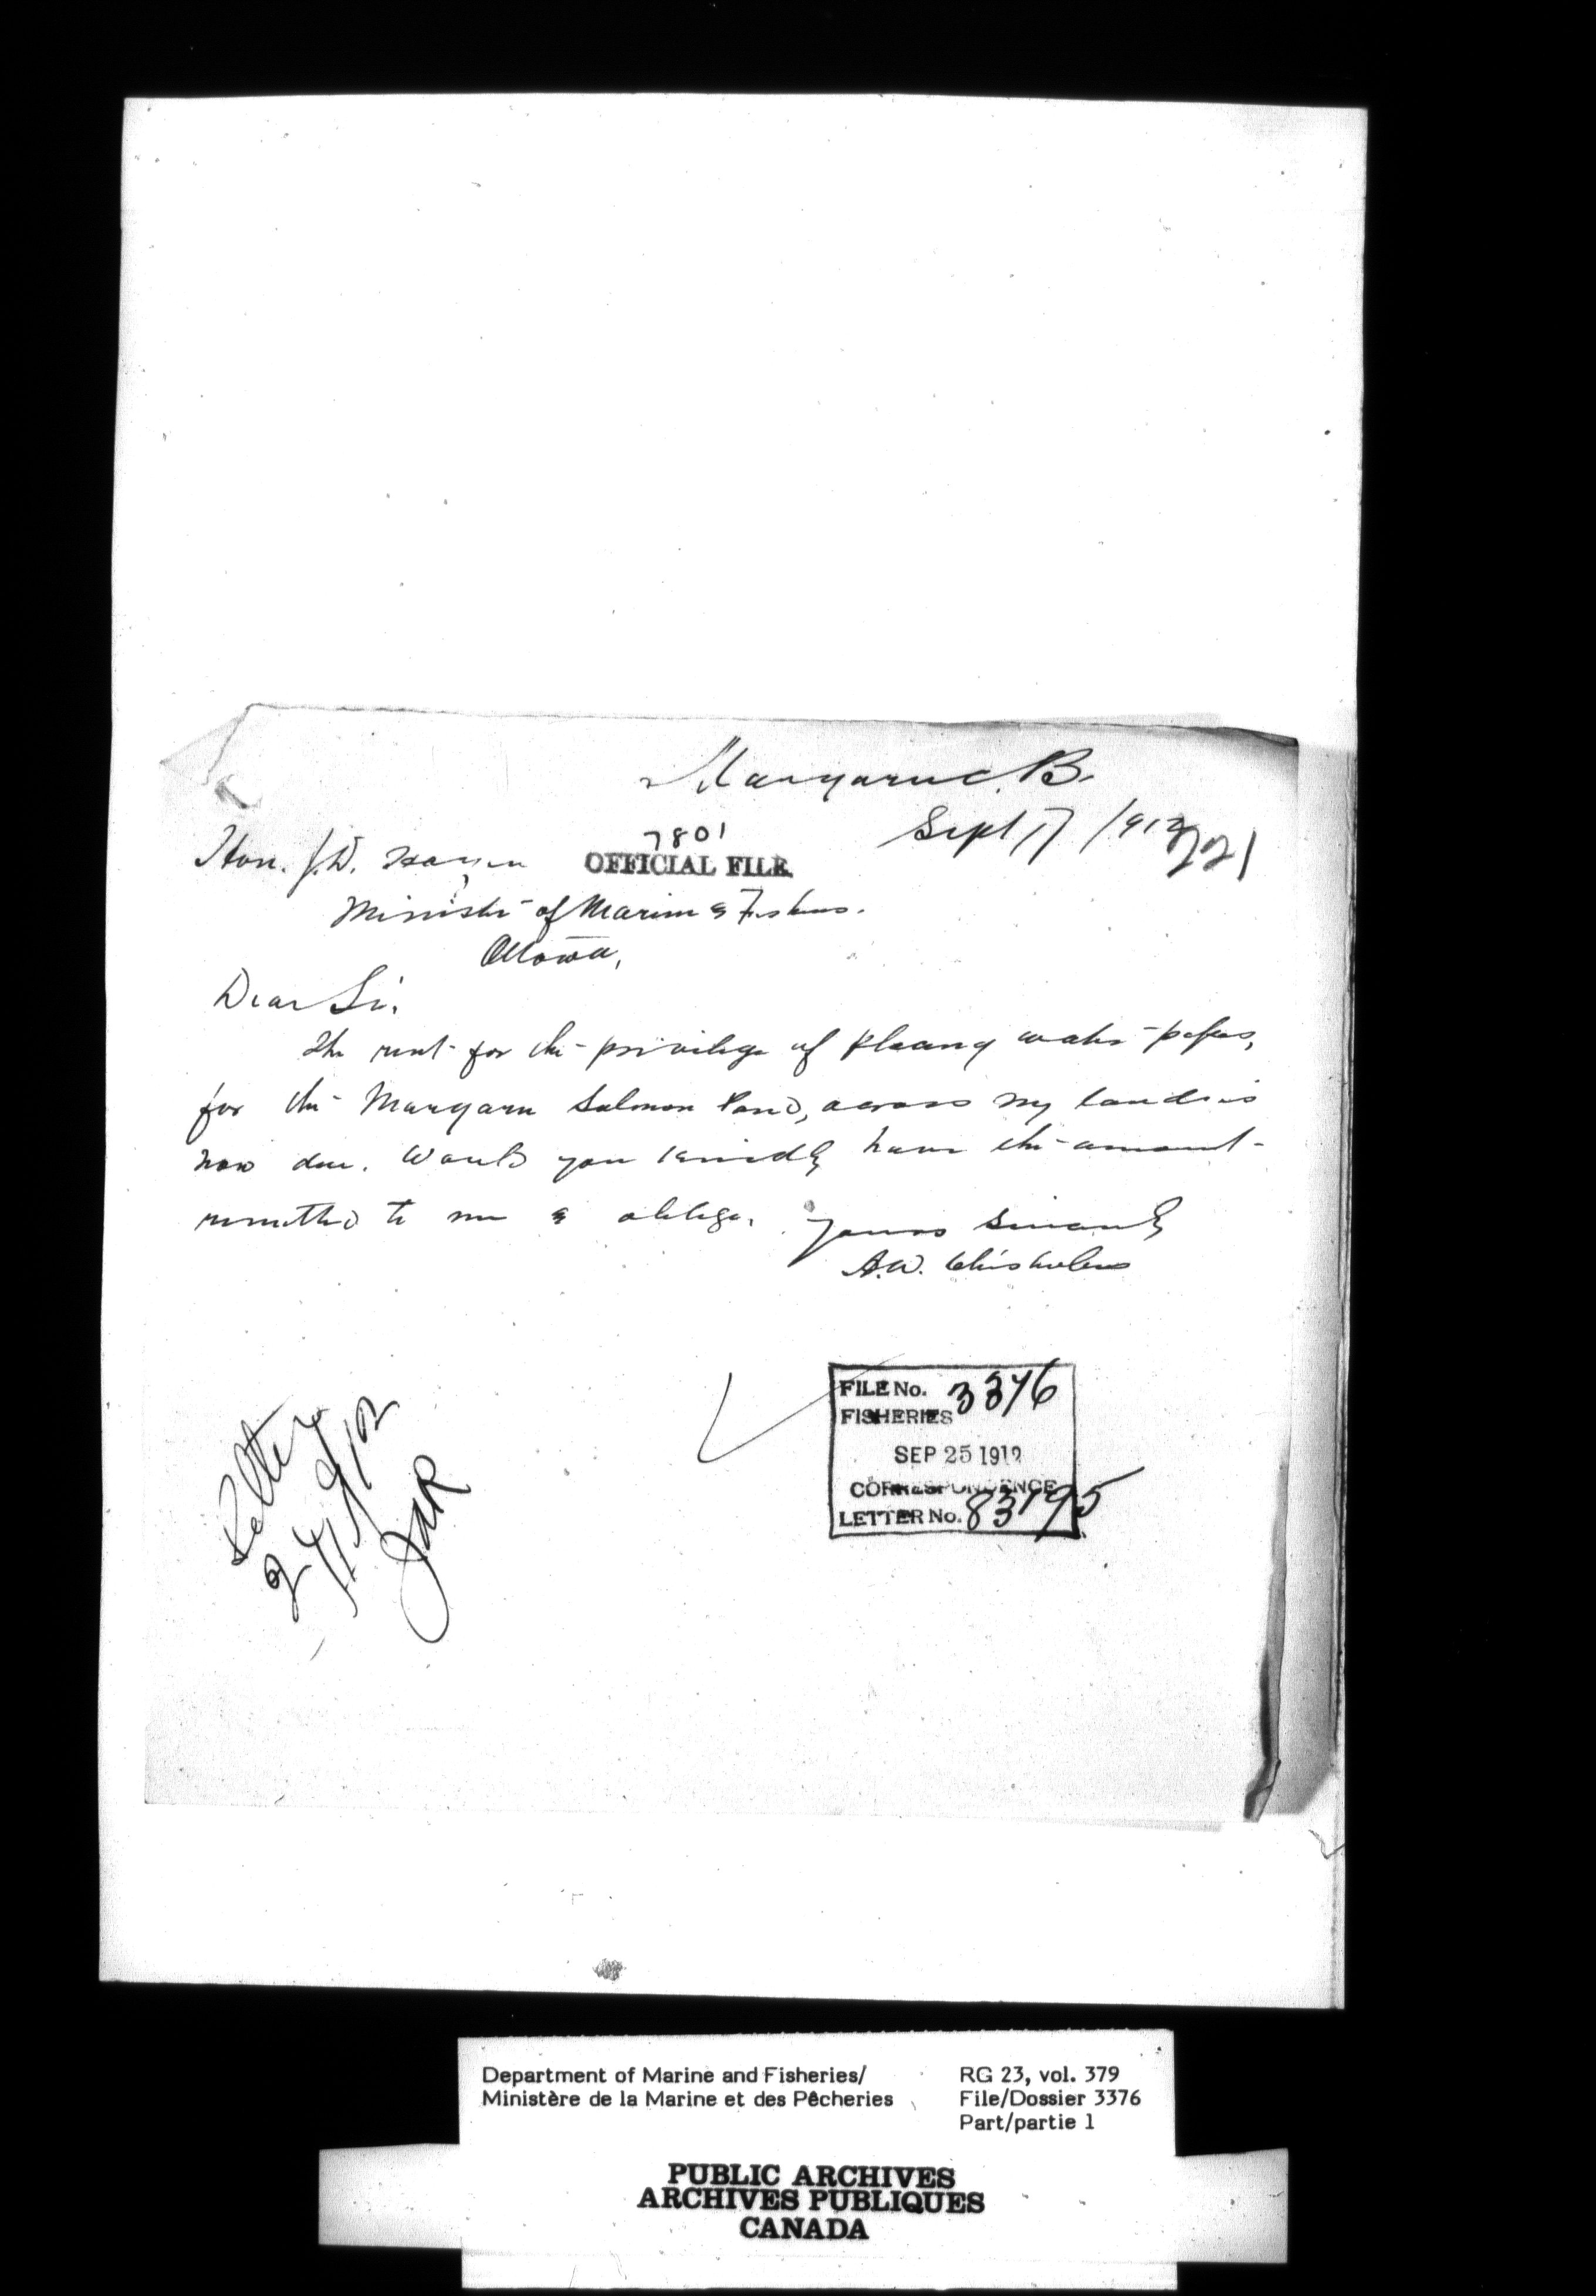 Margaree C.B.
Sept 17 /912
221
7801
OFFICIAL FILE
Hon. J.D. Hazen
Minister of Marine & Fisheries.
Ottawa,
Dear Sir.
The rent for the privilege of placing water-pipes,
for the Margaree Salmon Pond, across my land is
now due. Would you kindly have the amount
remitted to me & oblige. Yours Sincerely
A.W. Chisholm
Letter
27/9/12
JAR
FILE No. 3376
FISHERIES
SEP 25 1912
CORRESPONDENCE
LETTER No. 83195
Department of Marine and Fisheries/
Ministère de la Marine et des Pêcheries
RG 23, vol. 379
File/Dossier 3376
Part/partie 1
PUBLIC ARCHIVES
ARCHIVES PUBLIQUES
CANADA